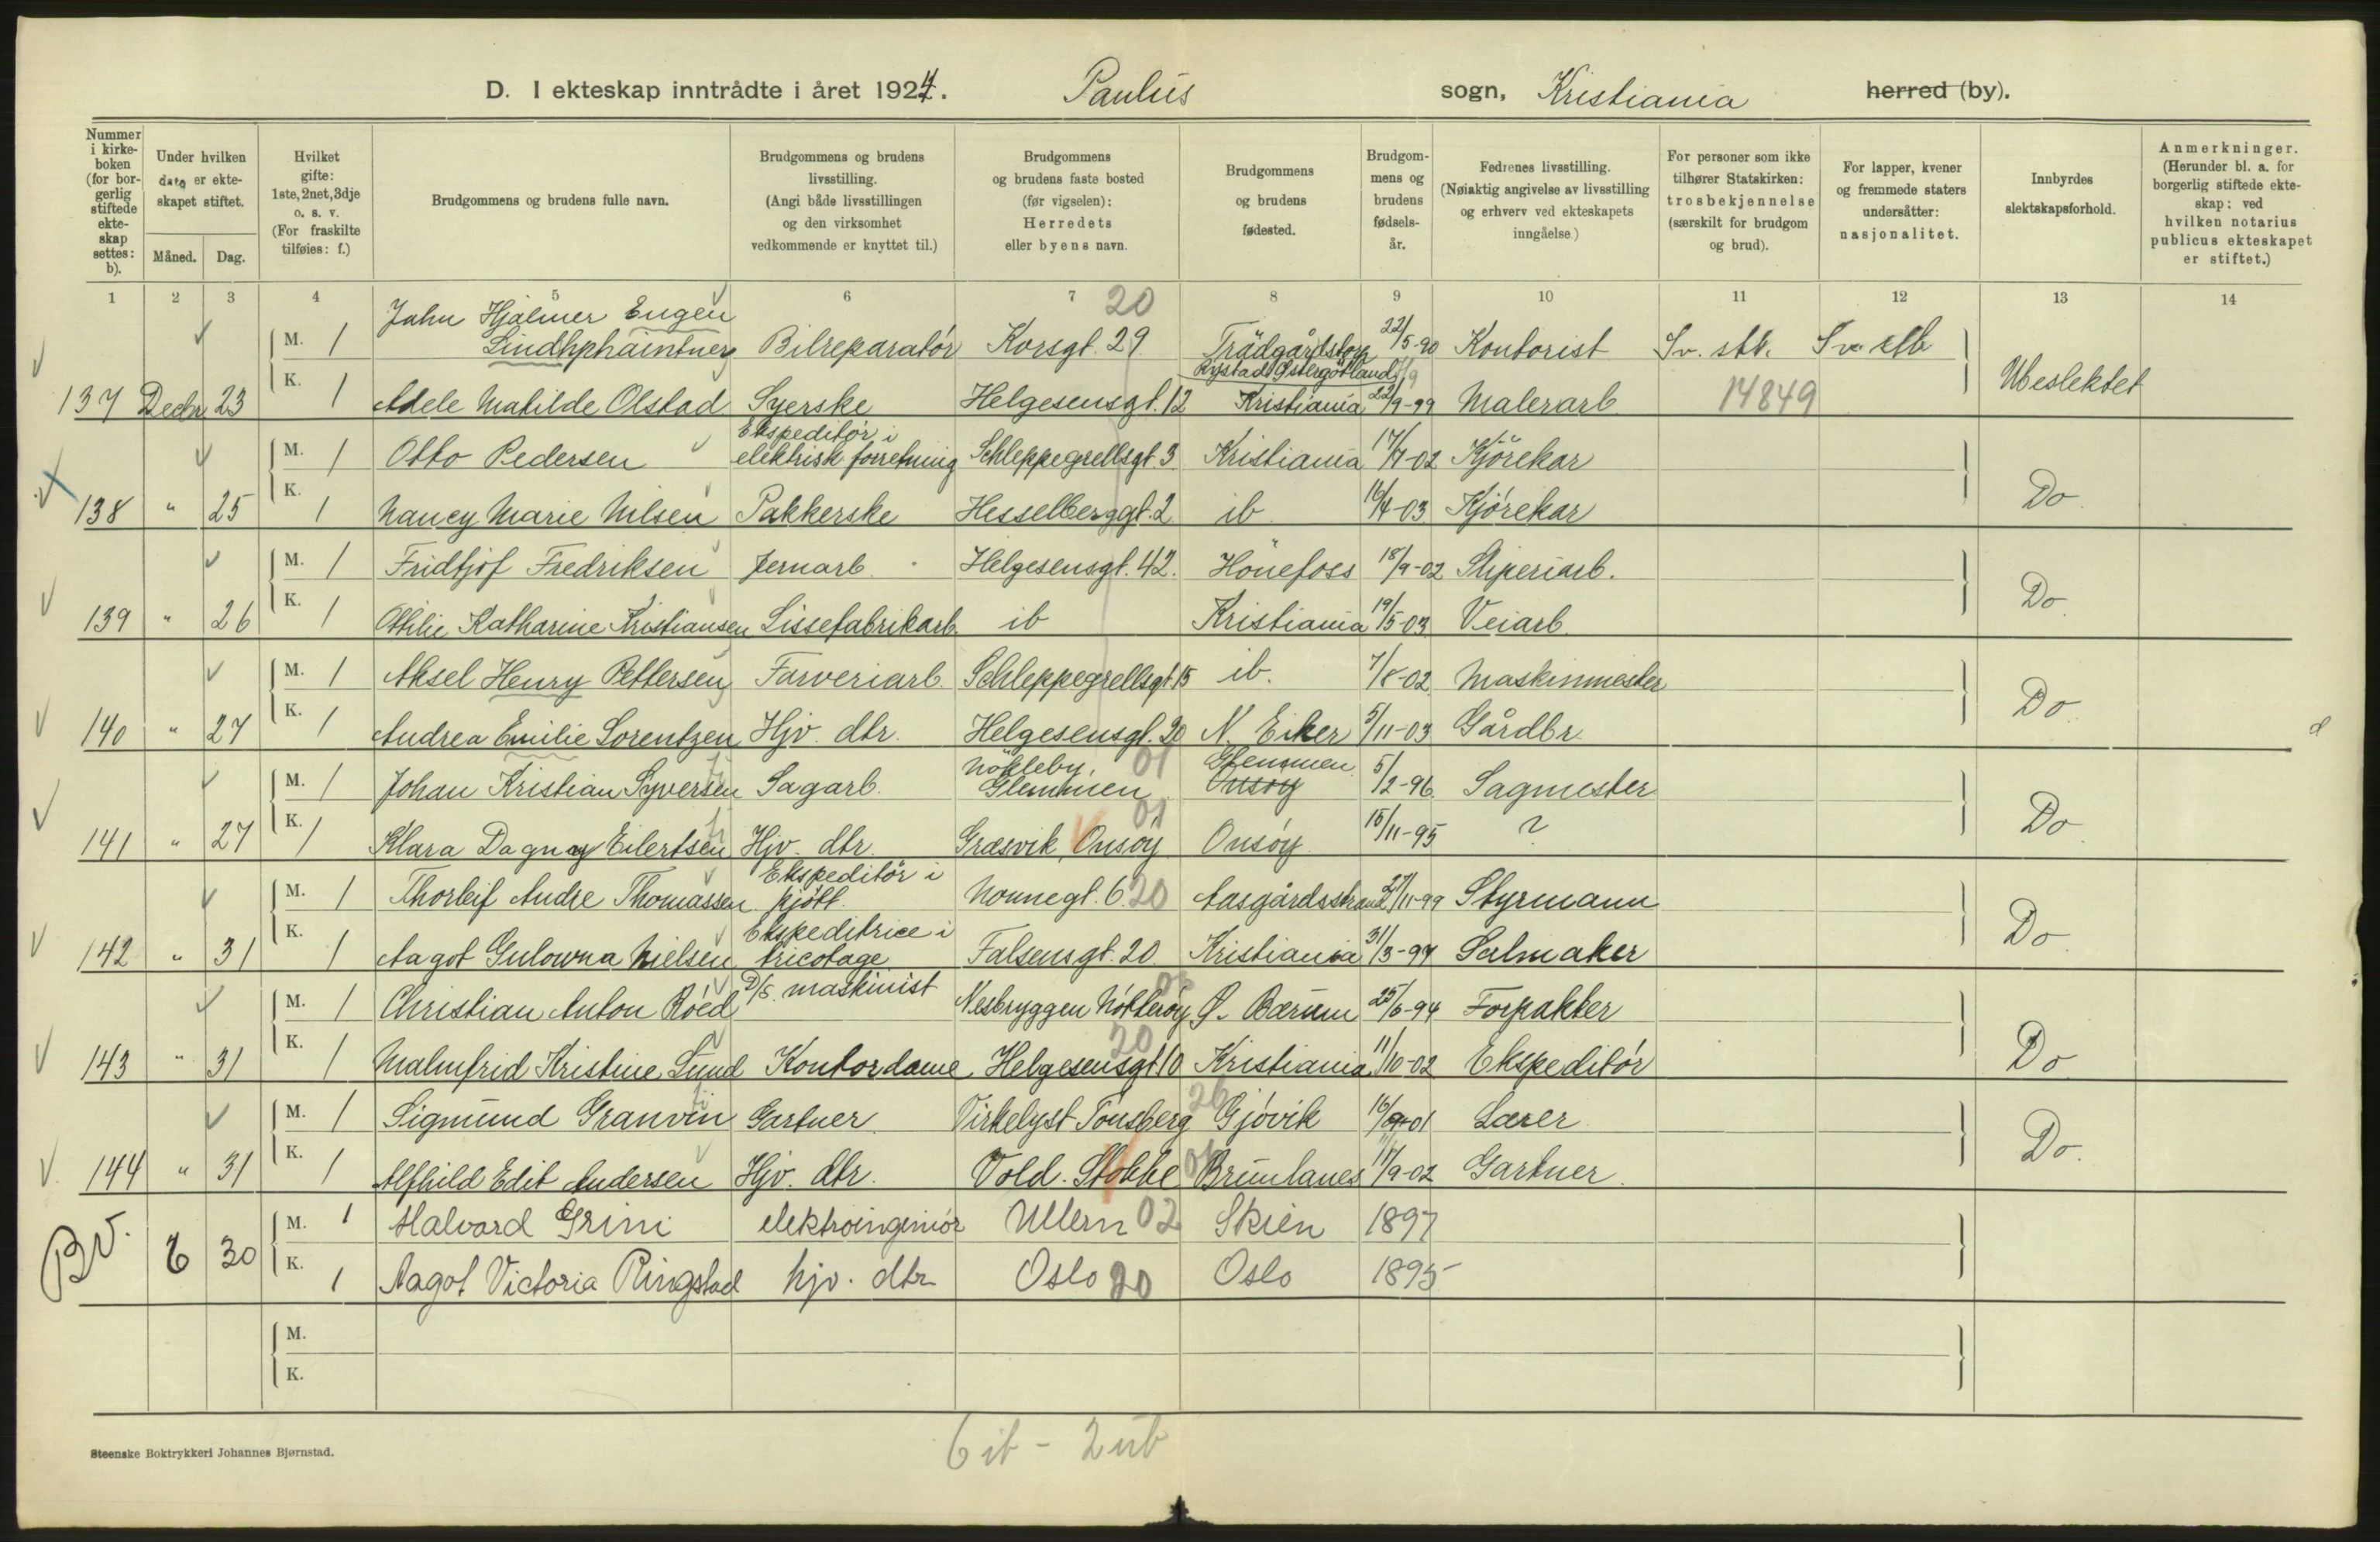 D. I ekteskap inntrådte i året 1924. Paulus sogn, Kristiania herred (by).
Nummer i kirkeboken (for borgerlig stiftede ekteskap settes: b).
Under hvilken dato er ekteskapet stiftet.
Måned. Dag.
Hvilket gifte: 1ste, 2net, 3dje o. s. v. (For fraskilte tilføies: f.)
Brudgommens og brudens fulle navn.
Brudgommens og brudens livsstilling. (Angi både livsstillingen og den virksomhet vedkommende er knyttet til.)
Brudgommens og brudens faste bosted (før vigselen): Herredets eller byens navn.
Brudgommens og brudens fødested.
Brudgommens og brudens fødselsår.
Fedrenes livsstilling. (Nøiaktig angivelse av livsstilling og erhverv ved ekteskapets inngåelse.)
For personer som ikke tilhører Statskirken: trosbekjennelse (særskilt for brudgom og brud).
For lapper, kvener og fremmede staters undersåtter: nasjonalitet.
Innbyrdes slektskapsforhold.
Anmerkninger. (Herunder bl. a. for borgerlig stiftede ekteskap: ved hvilken notarius publicus ekteskapet er stiftet.)
1 2 3 4 5 6 7 8 9 10 11 12 13 14
20
John Hjalmer Eugen
M. 1 Bilreparatør Korsgt. 29 Trädgårdstorp 22/5-90 Kontorist Sv. stk. Sv. stb
Rystad Östergötland
137 Decbr 23 K. 1 Adele Matilde Olstad Syerske Helgesensgt. 12 Kristiania 22/9-99 Malerarb. 14849 Ubeslektet
Ekspeditør i
M. 1 Otto Pedersen elektrisk forretning Schleppegrellsgt. 3 Kristiania 17/7-02 Kjørekar
138 " 25 K. 1 Nancy Marie Nilsen Pakkerske Hesselberggt. 2 ib 16/4-03 Kjørekar Do
M. 1 Fridtjof Fredriksen Jernarb. Helgesensgt. 42. Hönefoss 18/9-02 Sliperiarb.
139 " 26 K. 1 Othilie Katharine Kristiansen Lissefabrikarb. ib Kristiania 19/5-03 Veiarb. Do
M. 1 Aksel Henry Pettersen Farveriarb. Schleppegrellsgt. 15 ib. 7/8-02 Maskinmester
140 " 27 K. 1 Andrea Emilie Lorentzen Hjv. dtr. Helgesensgt. 20 N. Eiker 5/11-03 Gårdbr. Do.
Nökleby, 01 Glemmen
M. 1 Johan Kristian Syversen Sagarb. Glemmen Onsøy 5/2-96 Sagmester
01
141 " 27 K. 1 Klara Dagny Eilertsen Hjv. dtr. Græsvik, Onsøy Onsøy 15/11-95 ? Do
Ekspeditör i
M. 1 Thorleif Andre Thomassen kjött. Nonnegt. 6. 20 Aasgårdsstrand 27/11-99 Styrmann
Ekspeditrice i
142 " 31 K. 1 Aagot Gulowna Nielsen tricotage Falsensgt. 20 Kristiania 31/3-97 Salmaker Do
M. 1 Christian Anton Röed D/S. maskinist Nesbryggen Nötterøy Ø. Bærum 25/6-94 Forpakter
20
143 " 31 K. 1 Malmfrid Kristine Lund Kontordame Helgesensgt 10 Kristiania 11/10-02 Ekspeditör Do
M. 1 Sigmund Granvin Gartner Virkelyst Tønsberg Gjøvik 16/9-01 Lærer
144 " 31 K. 1 Alfhild Edit Andersen Hjv. dtr. Vold. Stokke Brunlanes 17/9-02 Gartner. Do.
M. 1 Halvard Grini elektroingeniør Ullern 02 Skien 1897
BV. 6 30 K. 1 Aagot Victoria Ringstad hjv. dtr Oslo 20 Oslo 1895
M.
K.
6 ib - 2 ub
Steenske Boktrykkeri Johannes Bjørnstad.